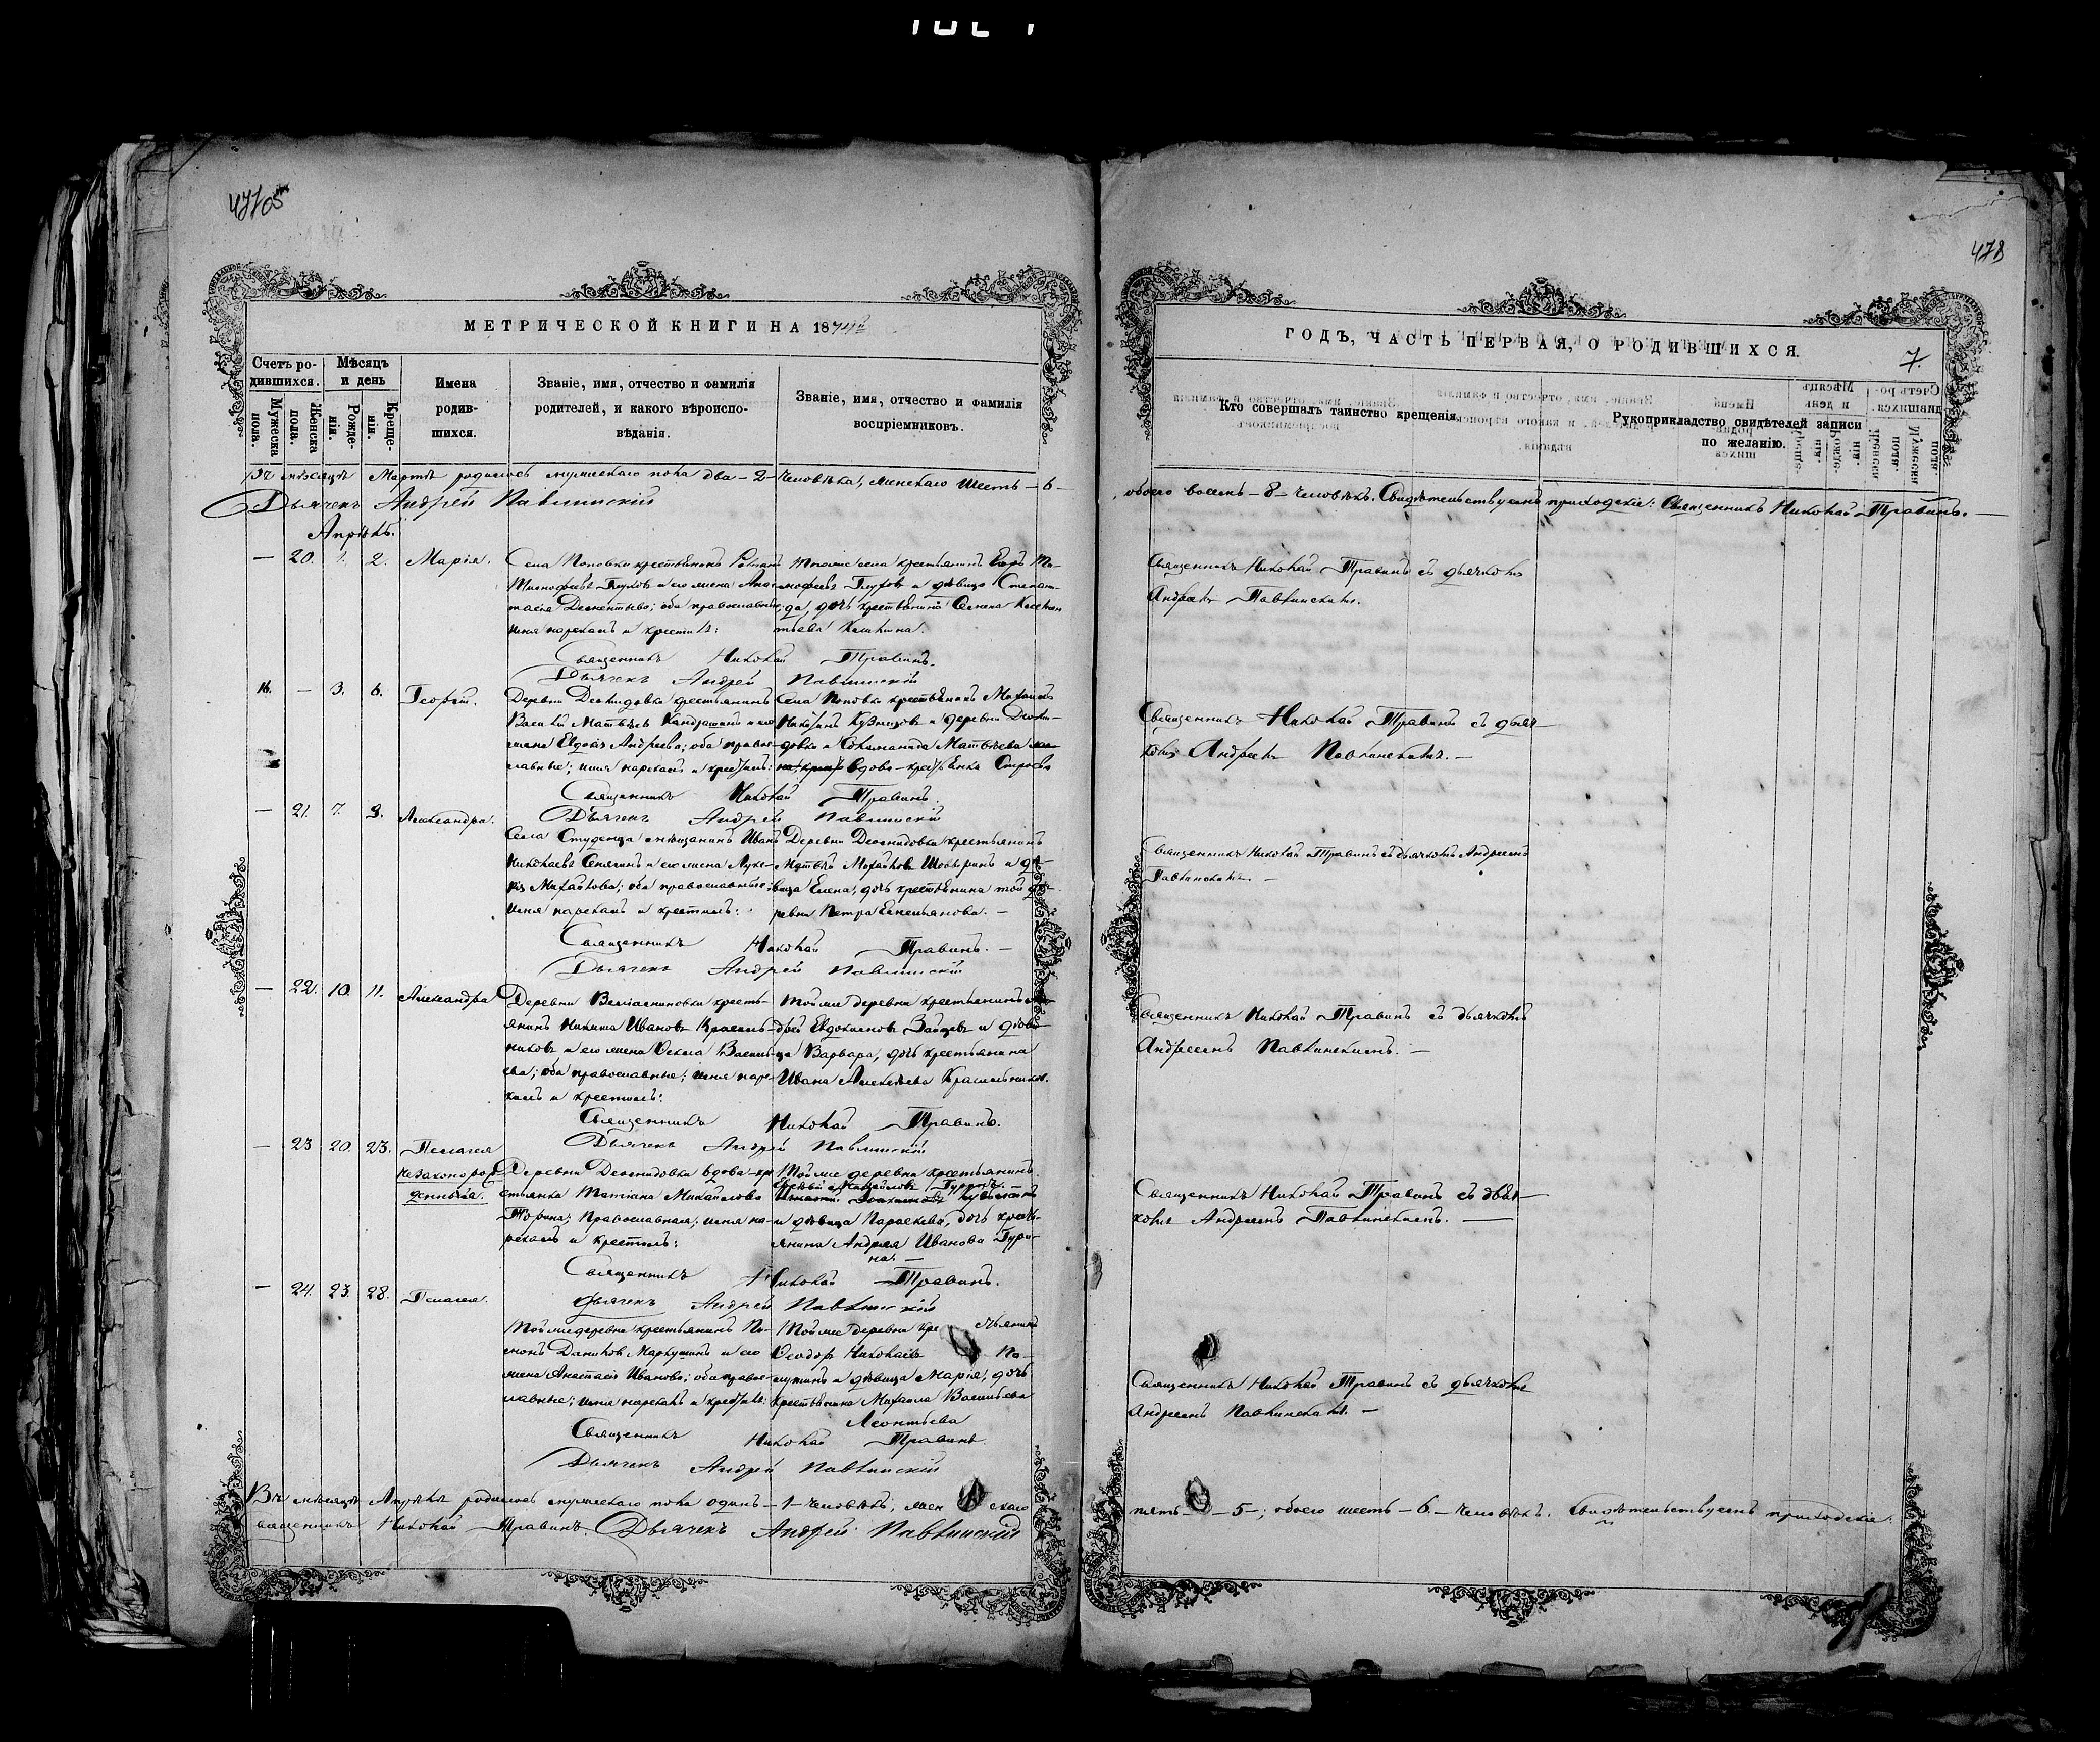 477об
478
МЕТРИЧЕСКОЙ КНИГИ НА 1874й
ГОДЪ, ЧАСТЬ ПЕРВАЯ, О РОДИВШИХСЯ.
7.
Счетъ ро-
дившихся.
Мужеска пола.
Женска пола.
Мѣсяцъ и день
Рожде-
нія.
Креще-
нія.
Имена
родив-
шихся.
Званіе, имя, отчество и фамилія
родителей, и какого вѣроиспо-
вѣданія.
Званіе, имя, отчество и фамилія
воспріемниковъ.
Кто совершалъ таинство крещенія.
Рукоприкладство свидѣтелей записи
по желанію.
Въ мѣсяцѣ Мартѣ родилось мужескаго пола два – 2 – человѣка, женскаго шесть – 6 –
обоего восемь – 8 – человѣкъ. Свидѣтельствуемъ приходскіе: Священникъ Николай Травинъ. —
Дьячекъ Андрей Павлинскій
Апрѣль.
— 20. 1. 2. Марія.
Села Поповки крестьянинъ
Тимофеевъ Глуховъ и его жена Анас-
тасія Дементьева; оба православные;
имя нарекалъ и крестилъ:
Тогоже села крестьянинъ Егоръ Ти-
мофеевъ Глуховъ и дѣвица Степани-
да, дочь крестьянина Семена
Священникъ Николай Травинъ.
Дьячекъ Андрей Павлинскій
Священникъ Николай Травинъ съ дьячкомъ
Андреемъ Павлинскимъ.
16. — 3. 6. Георгій.
Деревни Демидовки крестьянинъ
Василій Матвѣевъ и его
жена Евдокія Андреева; оба право-
славные; имя нарекалъ и крестилъ:
Села Поповки крестьянинъ Михаилъ
Никитинъ Кузнецовъ и деревни Деми-
довки Матвѣева
вдова – крестьянка
Священникъ Николай Травинъ.
Дьячекъ Андрей Павлинскій
Священникъ Николай Травинъ съ дьяч-
комъ Андреемъ Павлинскимъ. —
— 21. 7. 9. Александра.
Села Студенца мѣщанинъ Иванъ
Николаевъ и его жена Лукe-
рія Михайлова; оба православные;
имя нарекалъ и крестилъ:
Деревни Демидовки крестьянинъ
Матвѣй Михайловъ и дѣ-
вица Елена, дочь крестьянина той де-
ревни Петра Емельянова. —
Священникъ Николай Травинъ. —
Дьячекъ Андрей Павлинскій
Священникъ Николай Травинъ съ дьячкомъ Андреемъ
Павлинскимъ. —
— 22. 10. 11. Александра
Деревни кресть-
янинъ Никита Ивановъ Красиль-
никовъ и его жена Ѳекла Василь-
ева; оба православные; имя наре-
калъ и крестилъ:
Тойже деревни крестьянинъ
Евдокимовъ Зайцевъ и дѣви-
ца Варвара, дочь крестьянина
Ивана Алексѣева Красильников.
Священникъ Николай Травинъ.
Дьячекъ Андрей Павлинскій
Священникъ Николай Травинъ съ дьячкомъ
Андреемъ Павлинскимъ. —
— 23 20. 23. Пелагея
незаконорож-
денная.
Деревни Демидовки вдова – кр
стьянка Татіана Михайлова
православная; имя на-
рекалъ и крестилъ:
Тойже деревни крестьянинъ
Михайловъ
и дѣвица Параскева, дочь кресть-
янина Андрея Иванова Гури-
на. —
Священникъ Николай Травинъ.
Дьячекъ Андрей Павлинскій
Священникъ Николай Травинъ съ дьяч-
комъ Андреемъ Павлинскимъ. —
— 24. 23. 28. Пелагея.
Тойже деревни крестьянинъ
Даниловъ и его
жена Анастасія Иванова; оба право-
славные; имя нарекалъ и крестилъ:
Тойже деревни кре стьянинъ
Ѳеодоръ Николаевъ
и дѣвица Марія, дочь
крестьянина Михаила Васильева
Леонтьева
Священникъ Николай Травинъ
Дьячекъ Андрей Павлинскій
Священникъ Николай Травинъ съ дьячкомъ
Андреемъ Павлинскимъ. —
Въ мѣсяцѣ Апрѣлѣ родилось мужескаго пола одинъ – 1 – человѣкъ, жен скаго
пять – 5 –; обоего шесть – 6 – человѣкъ. Свидѣтельствуемъ приходскіе:
Священникъ Николай Травинъ. Дьячекъ Андрей Павлинскій